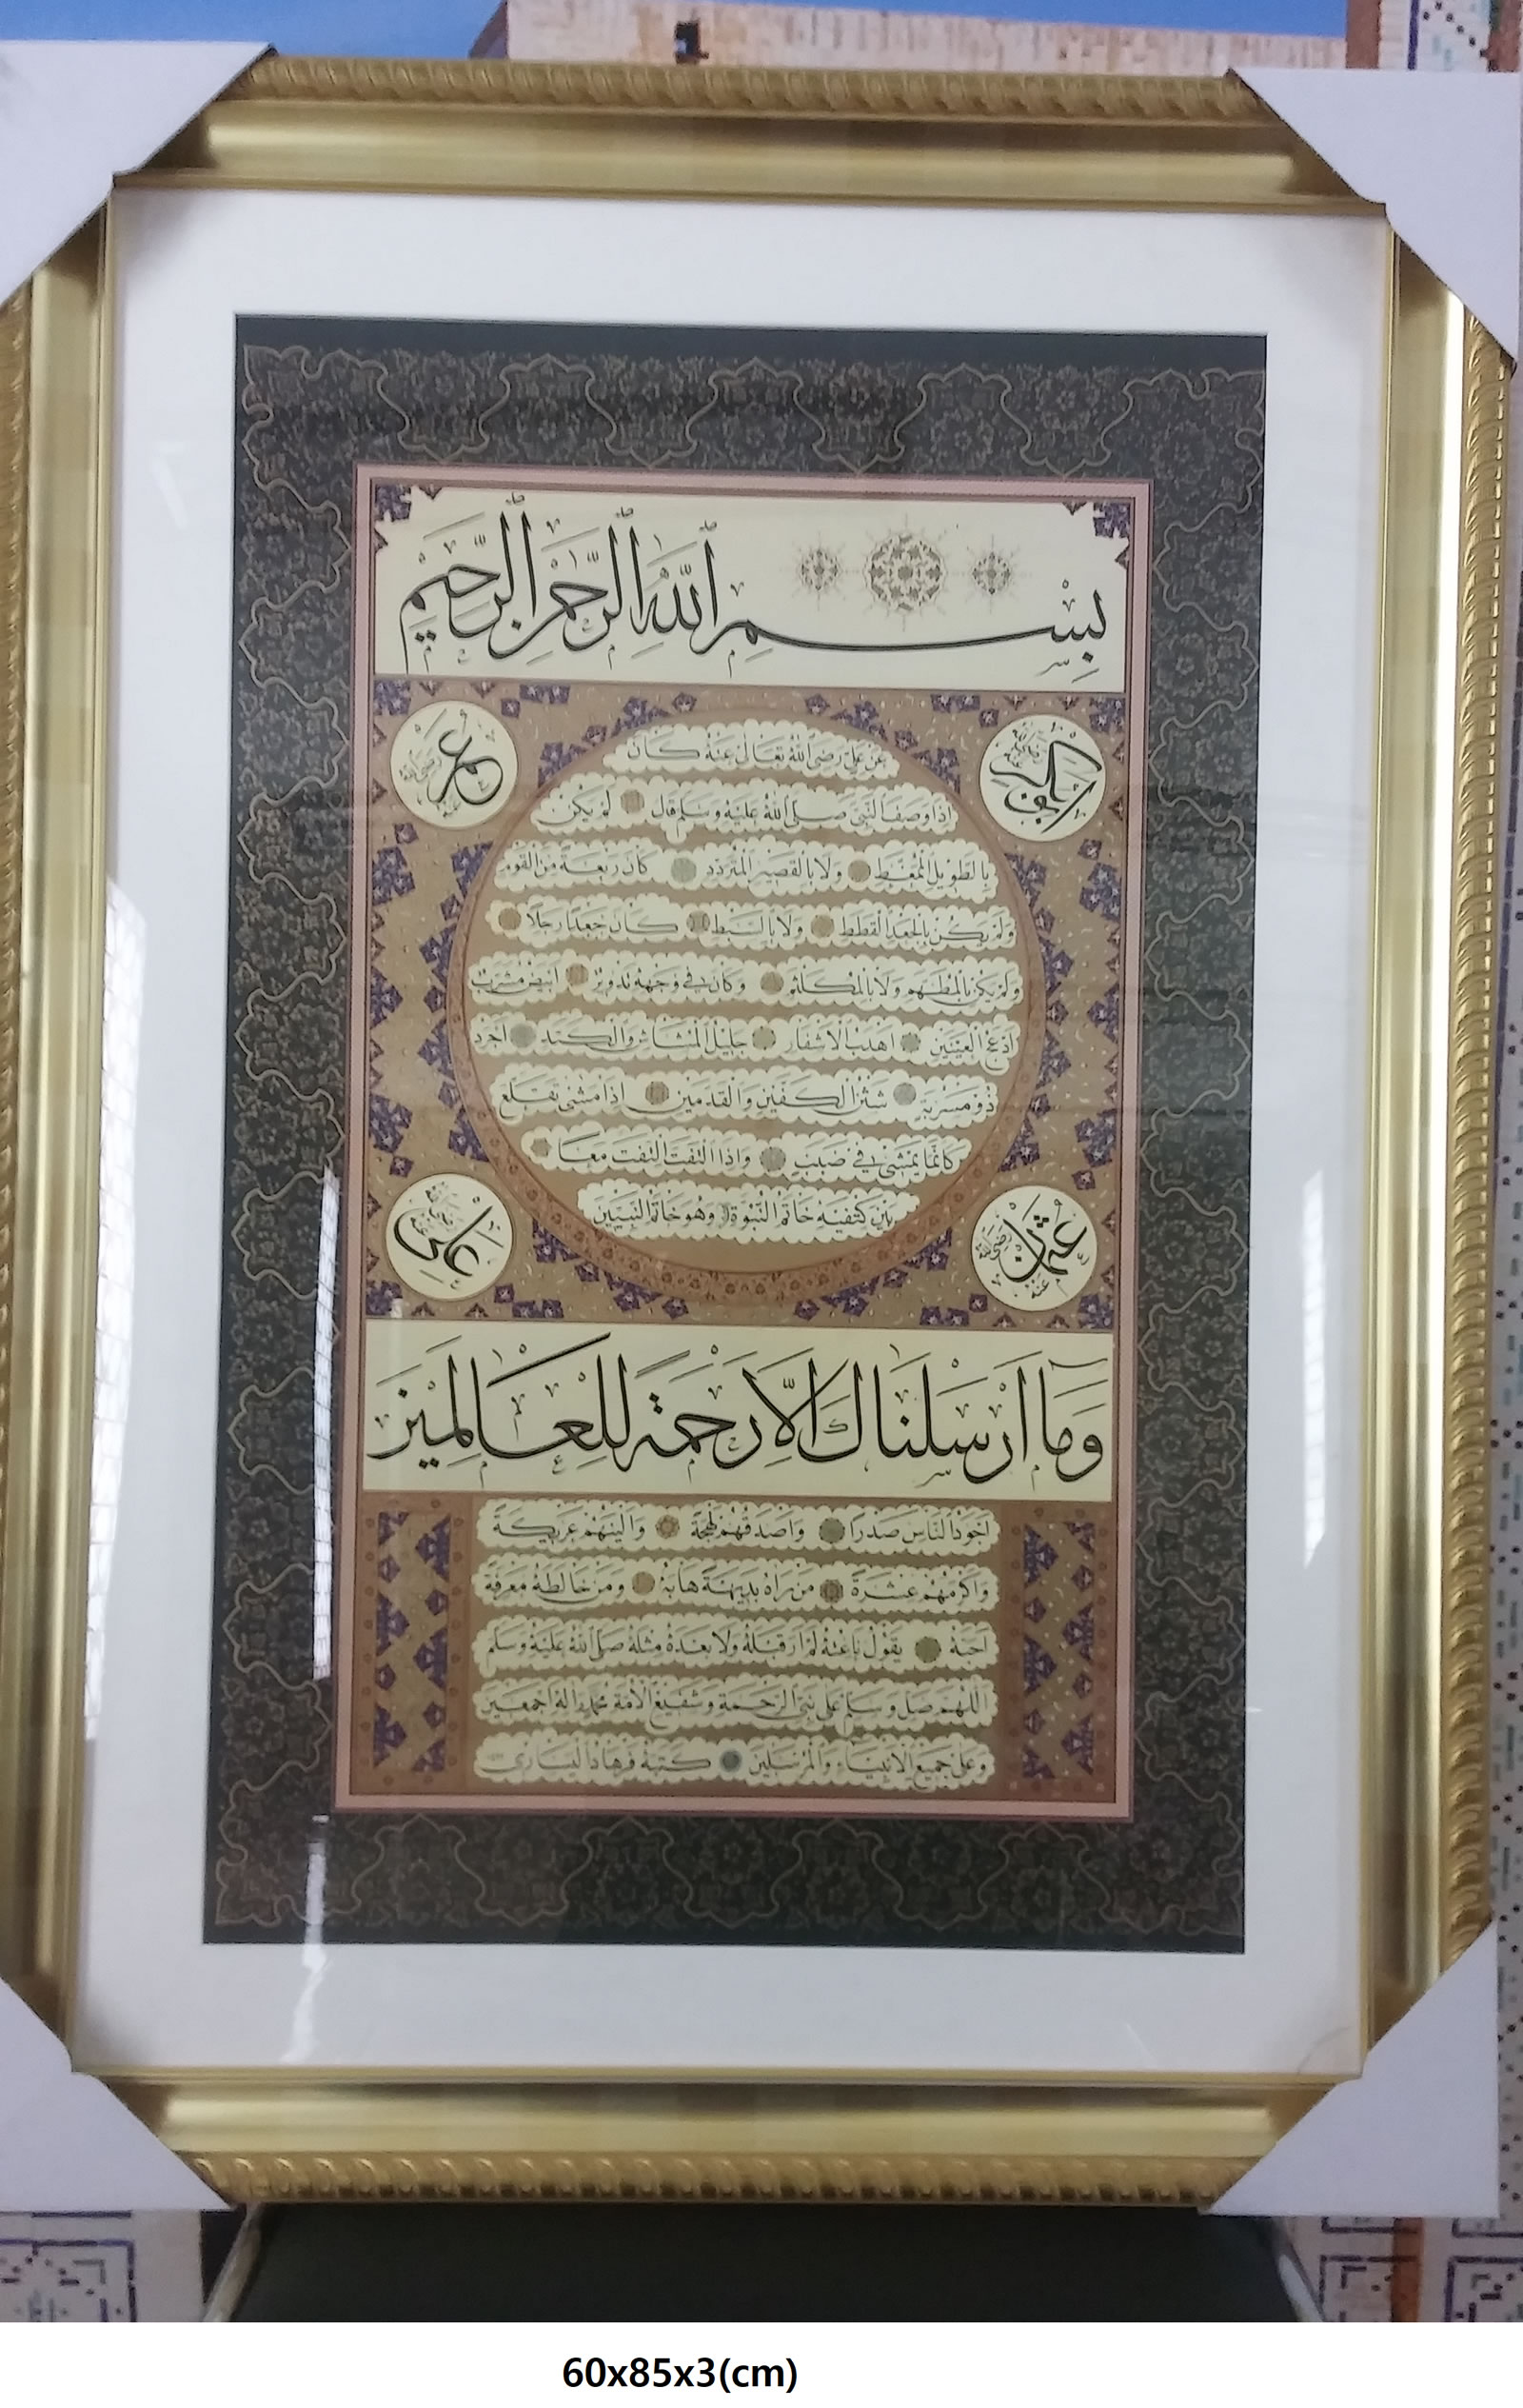 بِسْمِ اللّٰهِ الرَّحْمٰنِ الرَّحِيمِ
ابو بكر رضي الله عنه
عمر رضي الله عنه
عن علي رضى الله تعالى عنه كان
اذا وصف النبي صلى الله عليه وسلم قال لم يكن
بالطويل الممغط ولا بالقصير المتردد كان ربعة من القوم
ولم يكن بالجعد القطط ولا بالسبط كان جعدا رجلا
ولم يكن بالمطهم ولا بالمكلثم وكان في وجهه تدوير ابيض مشرب
ادعج العينين اهدب الاشفار جليل المشاش والكتد اجرد
ذو مسربة شثن الكفين والقدمين اذا مشى تقلع
كانما يمشى في صبب واذا التفت التفت معا
بين كتفيه خاتم النبوة وهو خاتم النبيين
عثمان رضي الله عنه
على رضي الله عنه
وَمَا اَرْسَلْنَاكَ اِلَّا رَحْمَةً لِلْعَالَمِينَ
اجود الناس صدرا واصدقهم لهجة والينهم عريكة
واكرمهم عشرة من راه بديهة هابه ومن خالطه معرفة
احبه يقول ناعته لم ار قبله ولا بعده مثله صلى الله عليه وسلم
اللهم صل وسلم على نبي الرحمة وشفيع الامة محمد واله اجمعين
وعلى جميع الانبياء والمرسلين كتبه فرهاد
60x85x3(cm)